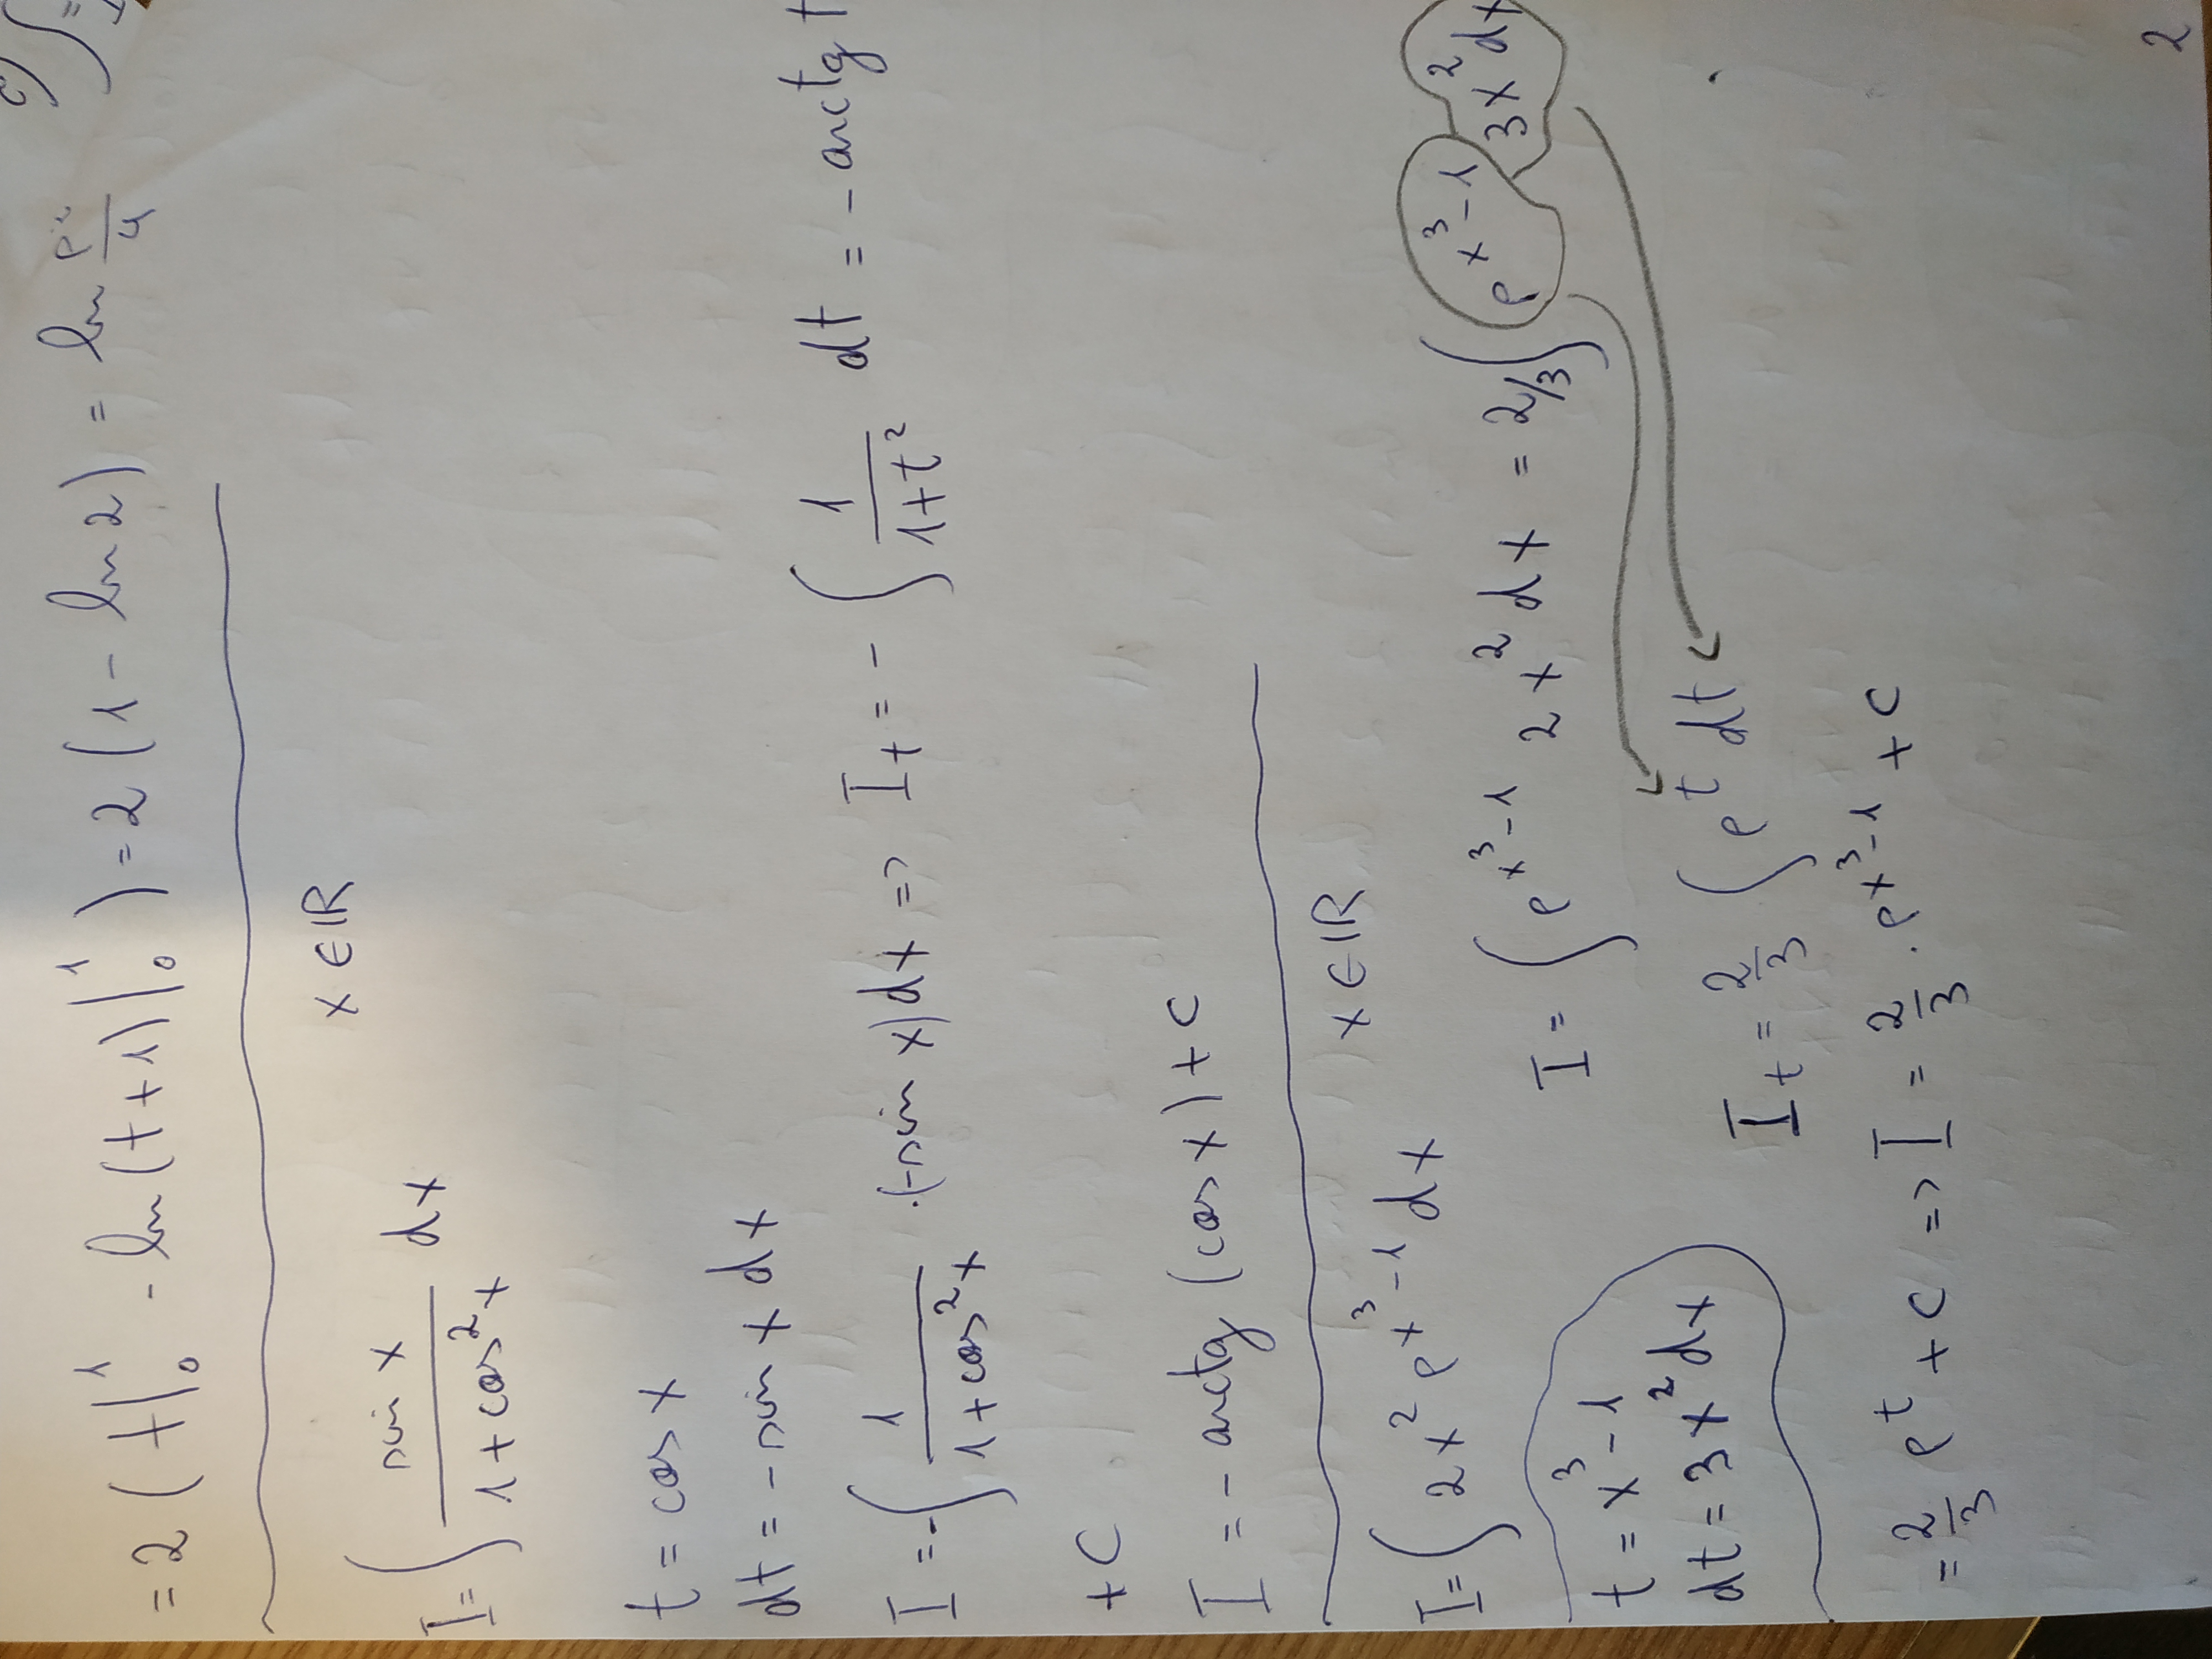 = 2 ( t|₀¹ - ln(t+1)|₀¹ ) = 2 (1 - ln 2) = ln e²/4
x ∈ ℝ
I = ∫ sin x / (1 + cos²x) dx
t = cos x
dt = - sin x dx
I = - ∫ 1 / (1 + cos²x) · (-sin x) dx => I_t = - ∫ 1 / (1 + t²) dt = - arctg t
+ C
I = - arctg (cos x) + C
x ∈ ℝ
I = ∫ 2x² e^(x³-1) dx
I = ∫ e^(x³-1) 2x² dx = 2/3 ∫ e^(x³-1) 3x² dx
t = x³ - 1
dt = 3x² dx
I_t = 2/3 ∫ e^t dt
= 2/3 e^t + C => I = 2/3 · e^(x³-1) + C
2